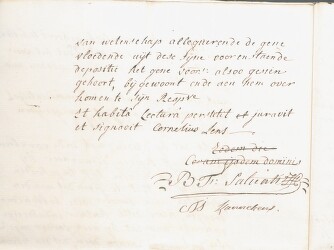 van wetenschap allegueerende de gene
vloeiende uijt dese sijne voorenstaende
depositie het gene voors: alsoo gesien
gehoort, bijgewoont ende aen hem over
komen te sijn
Et habita lectura perstitit et juravit
et signavit Cornelius Lens
Eodem die
Coram iisdem dominis